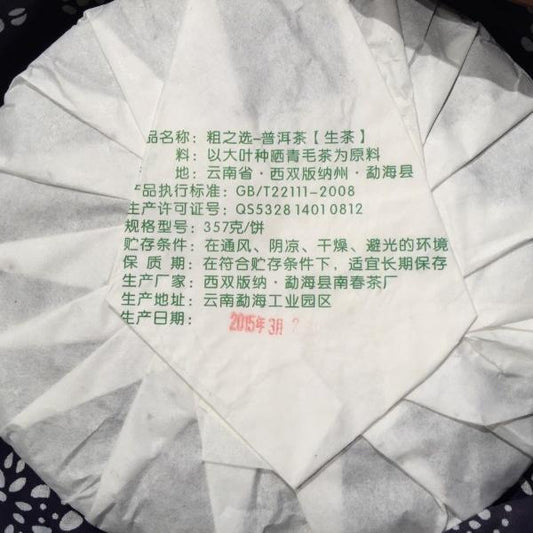 品名称：粗之选-普洱茶【生茶】
料：以大叶种晒青毛茶为原料
地：云南省·西双版纳州·勐海县
产品执行标准：GB/T22111-2008
生产许可证号：QS5328 1401 0812
规格型号：357克/饼
贮存条件：在通风、阴凉、干燥、避光的环境
保 质 期：在符合贮存条件下，适宜长期保存
生产厂家：西双版纳·勐海县南春茶厂
生产地址：云南勐海工业园区
生产日期：2015年3月